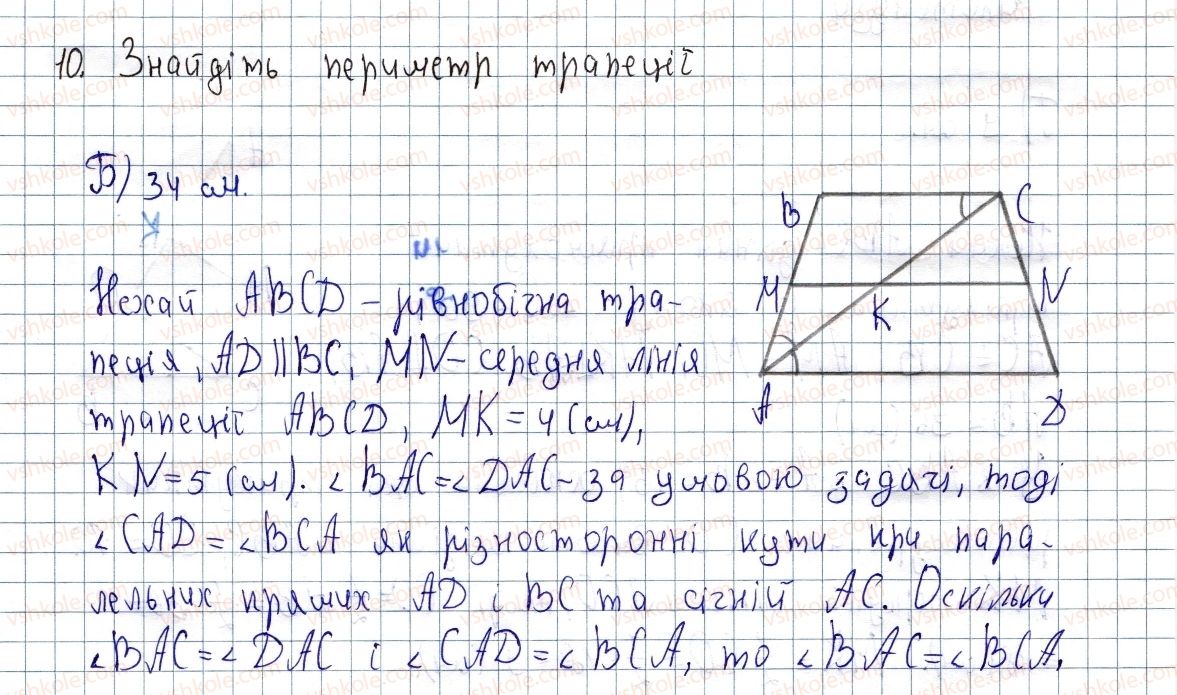 10. Знайдіть периметр трапеції
Б) 34 см.
B C
M K N
A D
Нехай ABCD – рівнобічна тра-
пеція, AD || BC, MN – середня лінія
трапеції ABCD, MK = 4 (см),
KN = 5 (см). ∠BAC = ∠DAC – за умовою задачі, тоді
∠CAD = ∠BCA як різносторонні кути при пара-
лельних прямих AD і BC та січній AC. Оскільки
∠BAC = ∠DAC і ∠CAD = ∠BCA, то ∠BAC = ∠BCA.
vshkole.com